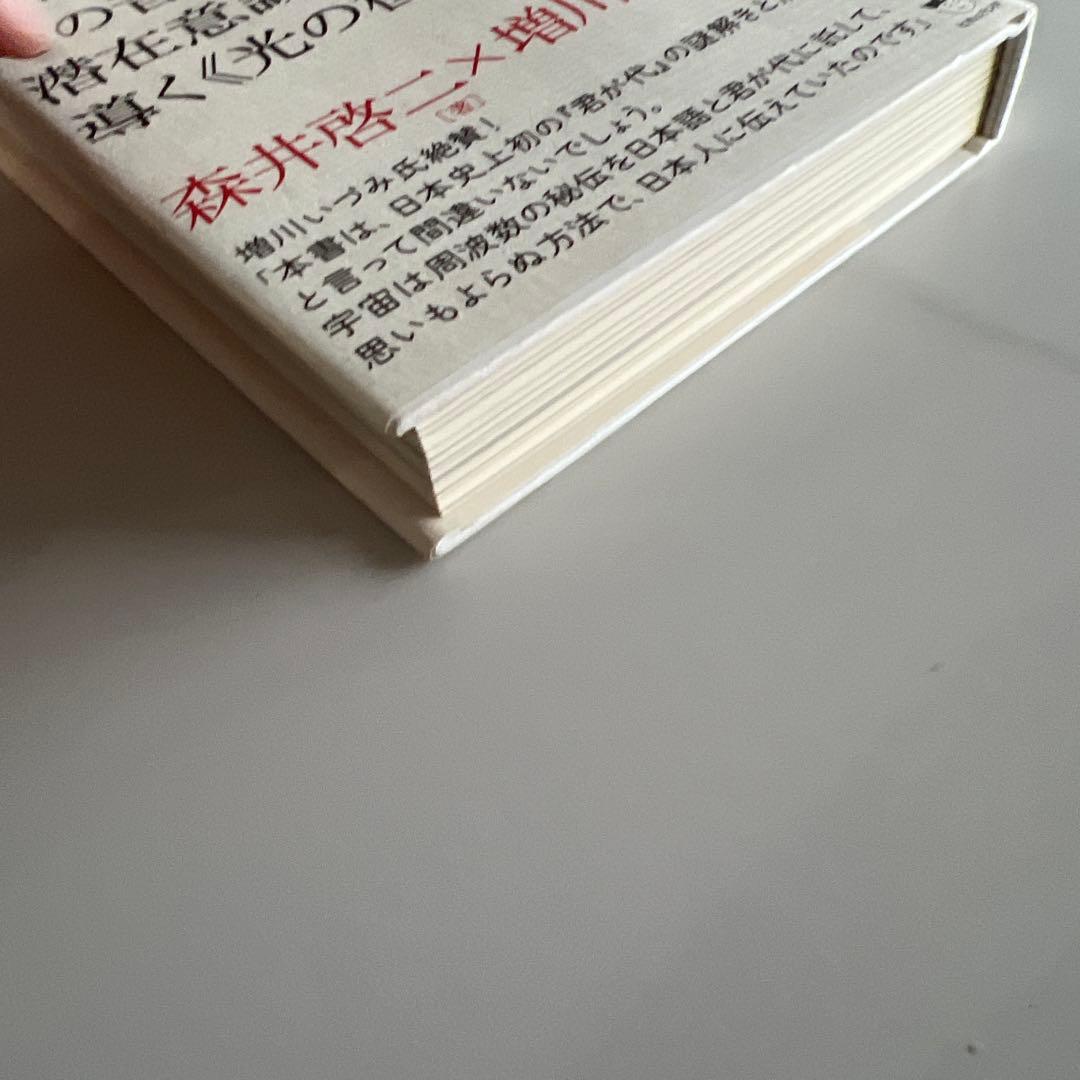 の音
潜在意識
導く《光の
森井啓二×増川
[著]
増川いづみ氏絶賛!
「本書は、日本史上初の『君が代』の謎解きと
と言って間違いないでしょう。
宇宙は周波数の秘伝を日本語と君が代に託して、
思いもよらぬ方法で、日本人に伝えていたのです」